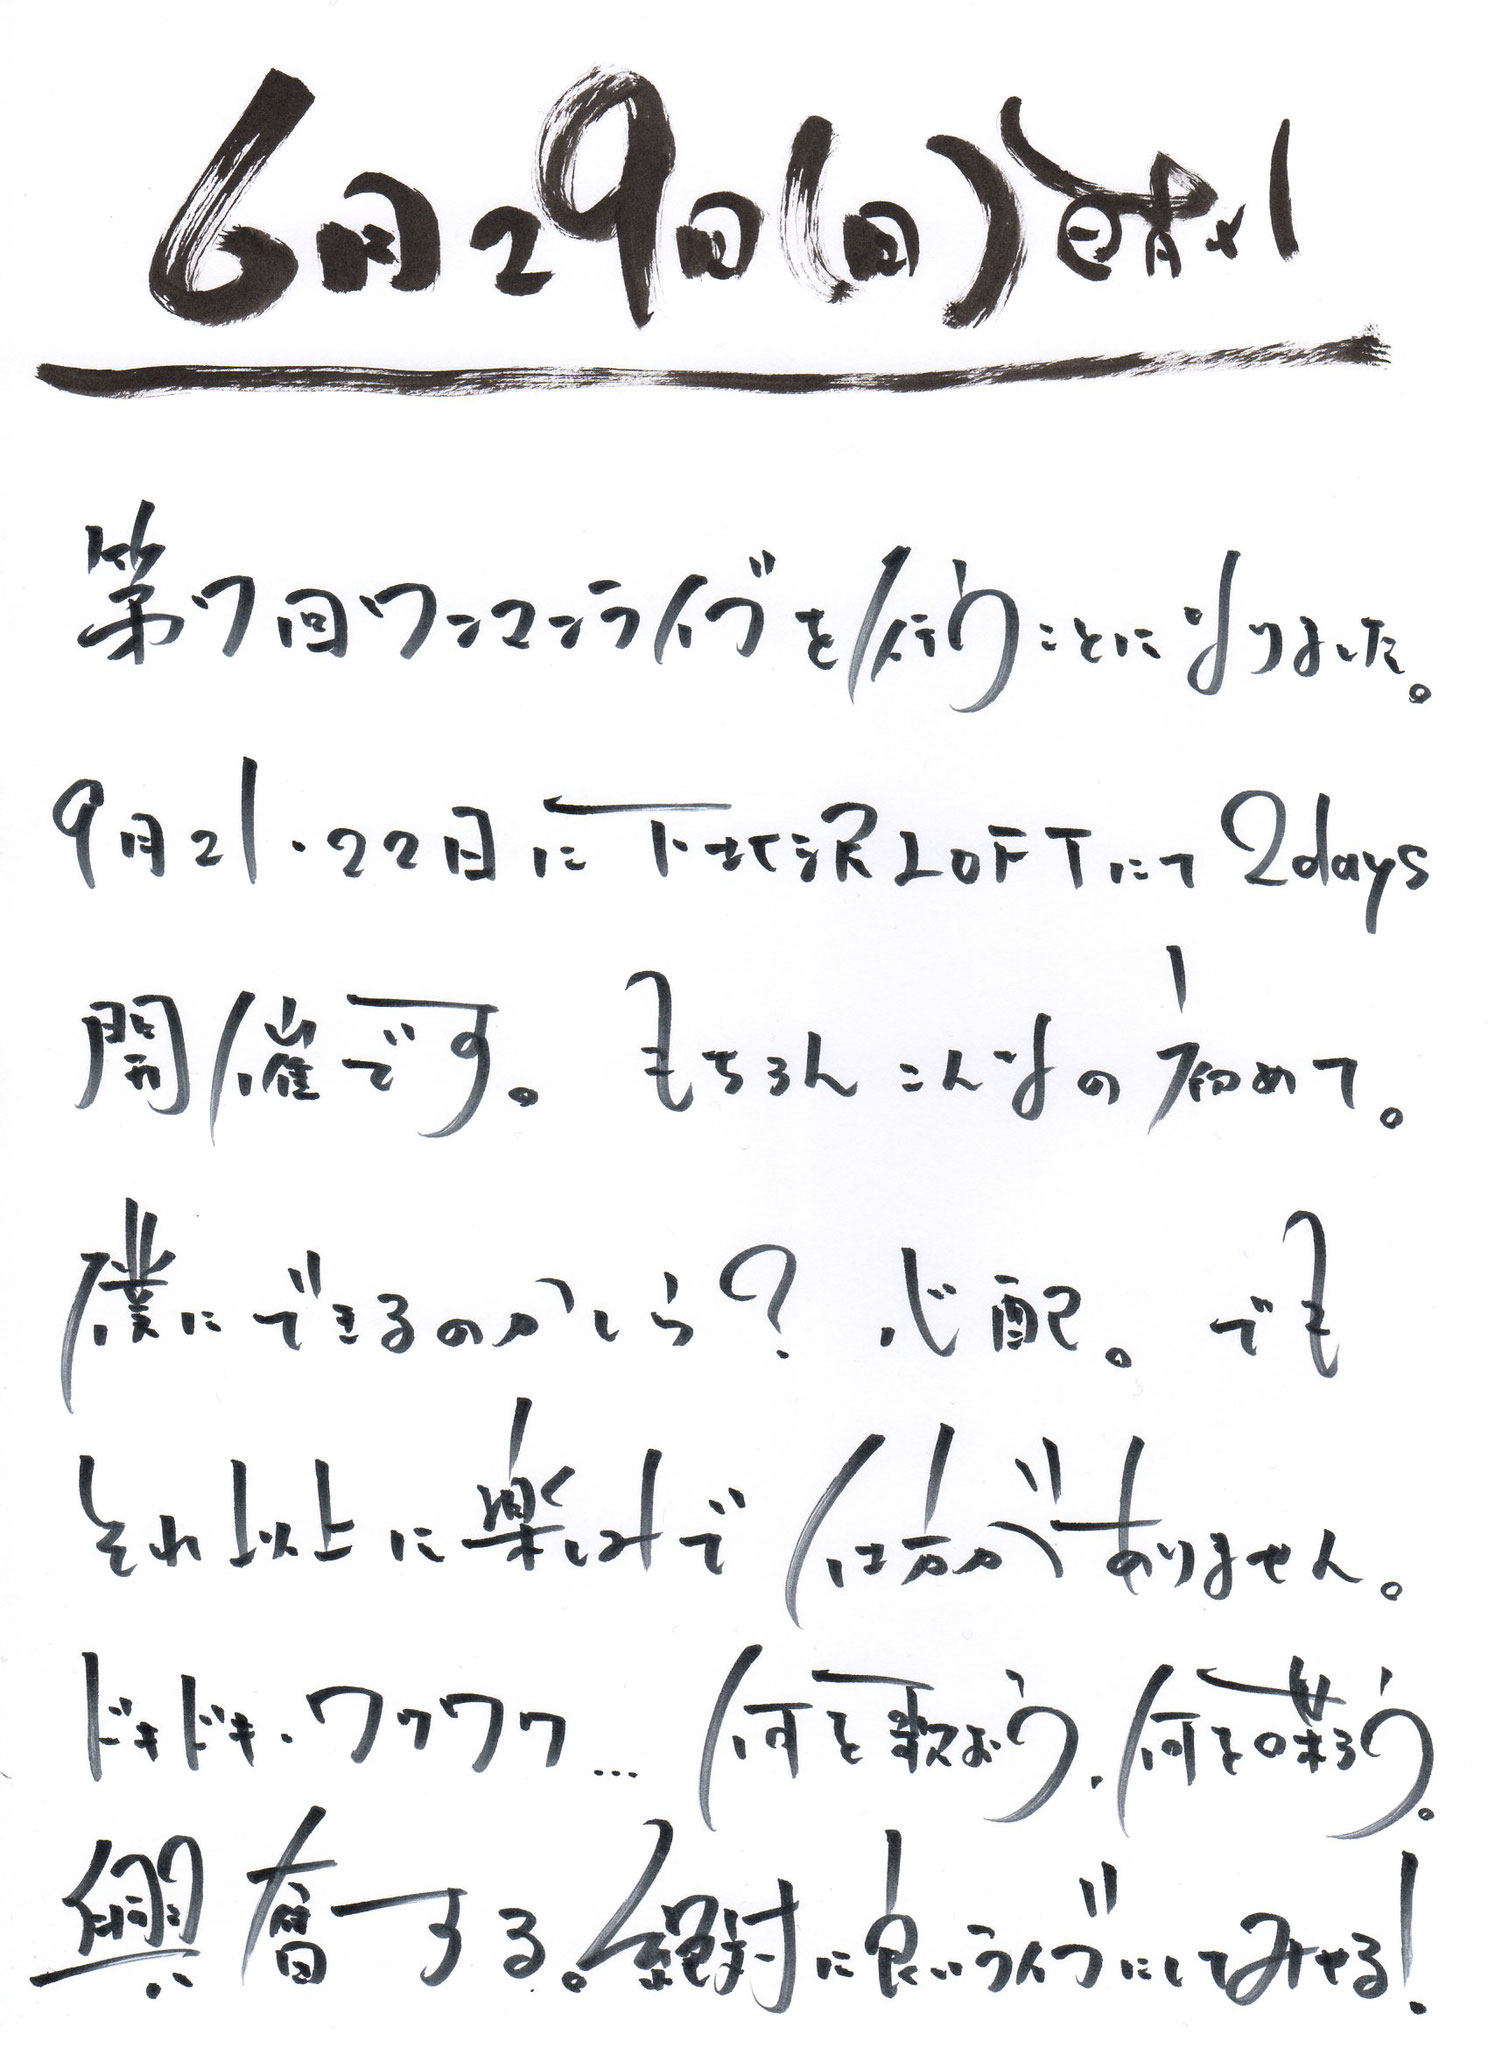 6月29日(日)晴れ
第7回ワンマンライブを行うことになりました。
9月21・22日に下北沢LOFTにて2days
開催です。 もちろんこんなの初めて。
僕にできるのかしら? 心配。でも
それ以上に楽しみで仕方がありません。
ドキドキ・ワクワク… 何を歌おう、何を喋ろう。
興奮する。絶対に良いライブにしてみせる!